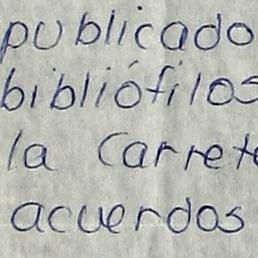 publicado
bibliófilos
la Carrete
acuerdos